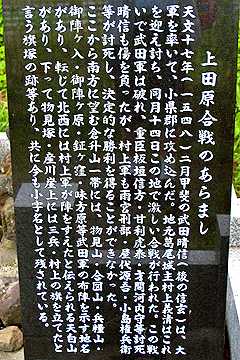 上田原合戦のあらまし
天文十七年(一五四八)二月甲斐の武田晴信(後の信玄)は、大
軍を率いて、小県郡に攻め込んだ。地元葛尾城主村上義清はこれ
を迎え討ち、同月十四日この地で激しい合戦が行われた。この戦
いで武田軍は破れ、重臣板垣信方・甘利虎泰・才間河内守等討死
晴信も傷を負ったが、村上軍も雨宮刑部・屋代源吾・小島権兵衛
等が討死し、決定的な勝利を得ることができなかった。
ここから南方に望む倉升山一帯には、物見山・合図山・兵糧山・
御陣ヶ入・御陣ヶ原・鉦ヶ窪・味方原等武田軍の布陣を示す地名
があり、転じて北西には村上軍が陣をすえたと伝えられる天白山
があり、下って物見塚・産川岸上には三兵・村上の旗を立てたと
言う旗塚の跡等あり、共に今も小字名として残されている。